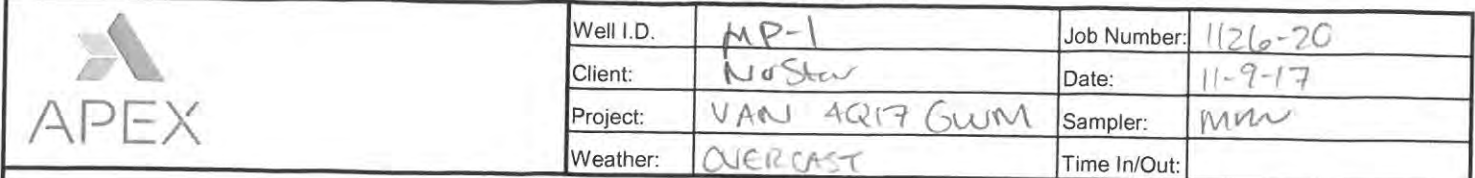 APEX
Well I.D. MP-1 Job Number: 1126-20
Client: NuStar Date: 11-9-17
Project: VAN 4Q17 GWM Sampler:
Weather: OVERCAST Time In/Out: